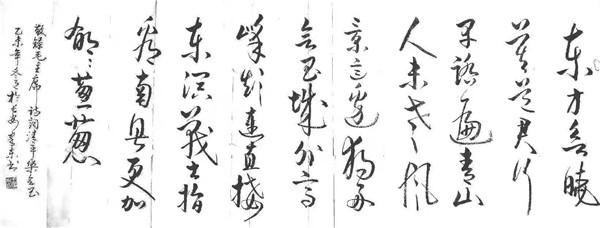 东方欲晓
莫道君行
早踏遍青山
人未老风
景这边独好
会昌城外高
峰颠连直接
东溟战士指
看南粤更加
郁郁葱葱
敬録毛主席 诗词清平樂会昌
乙未年冬 於长安 东书